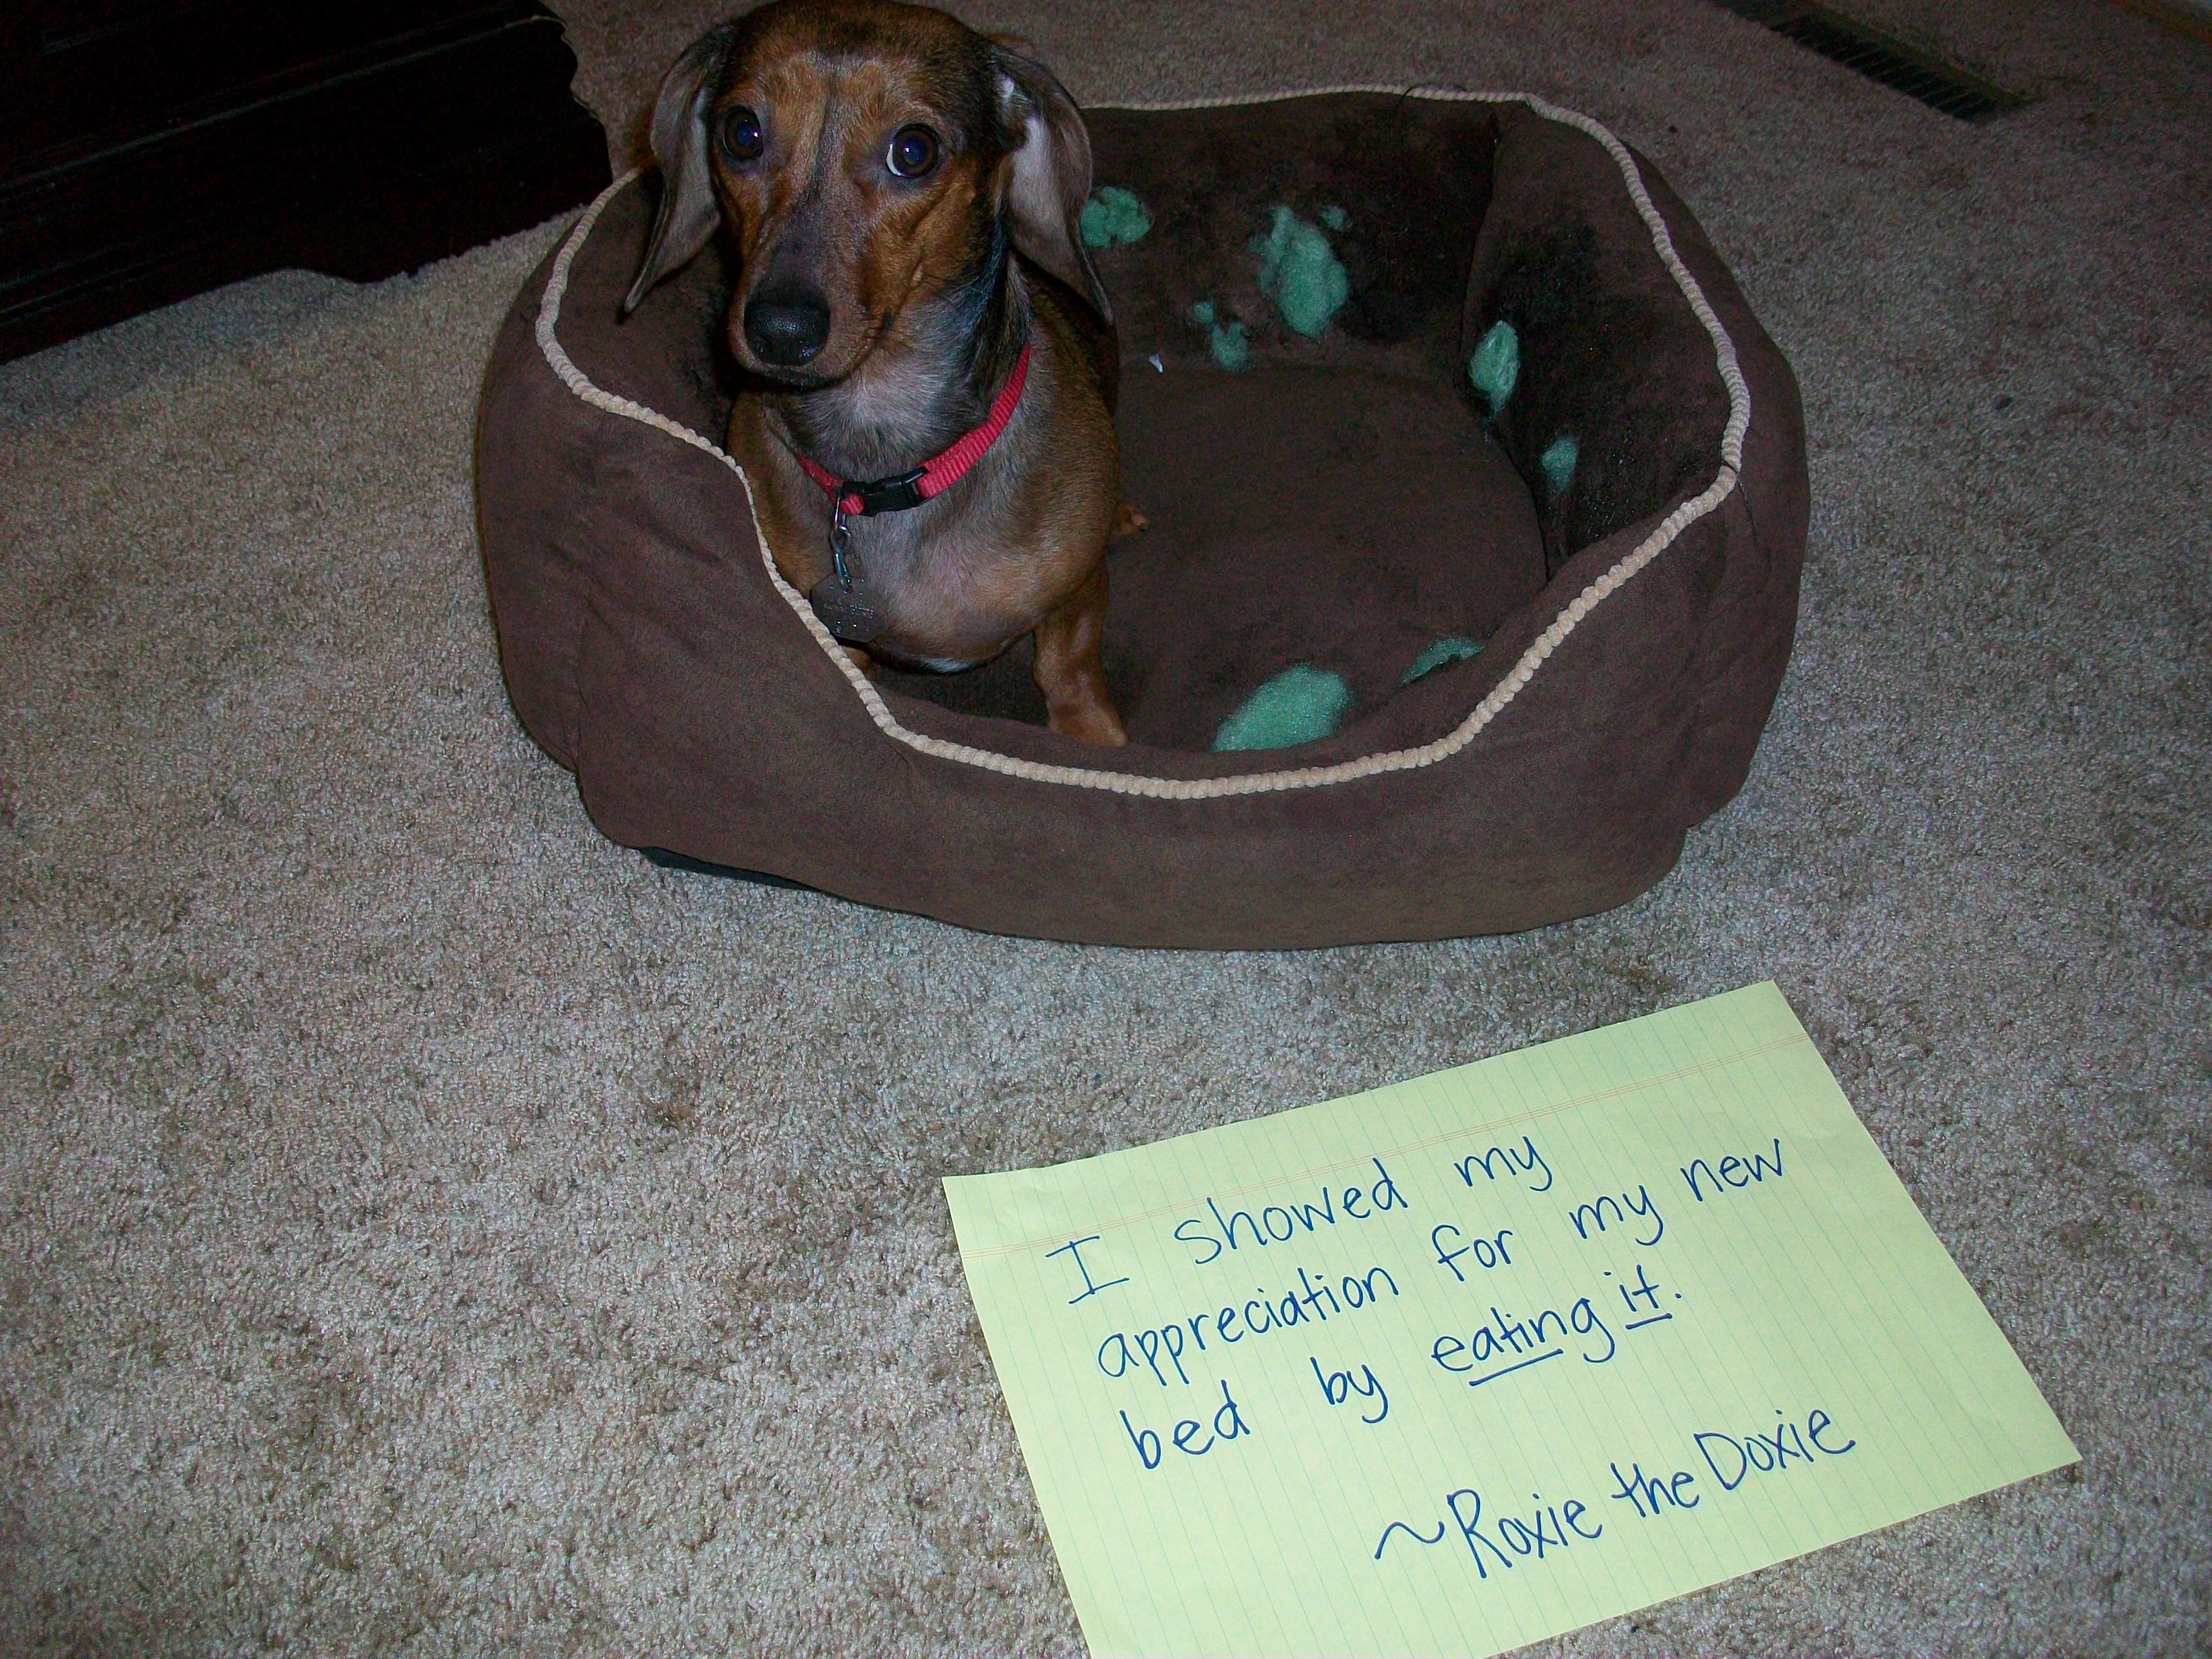 I showed my
appreciation for my new
bed by eating it.
~Roxie the Doxie